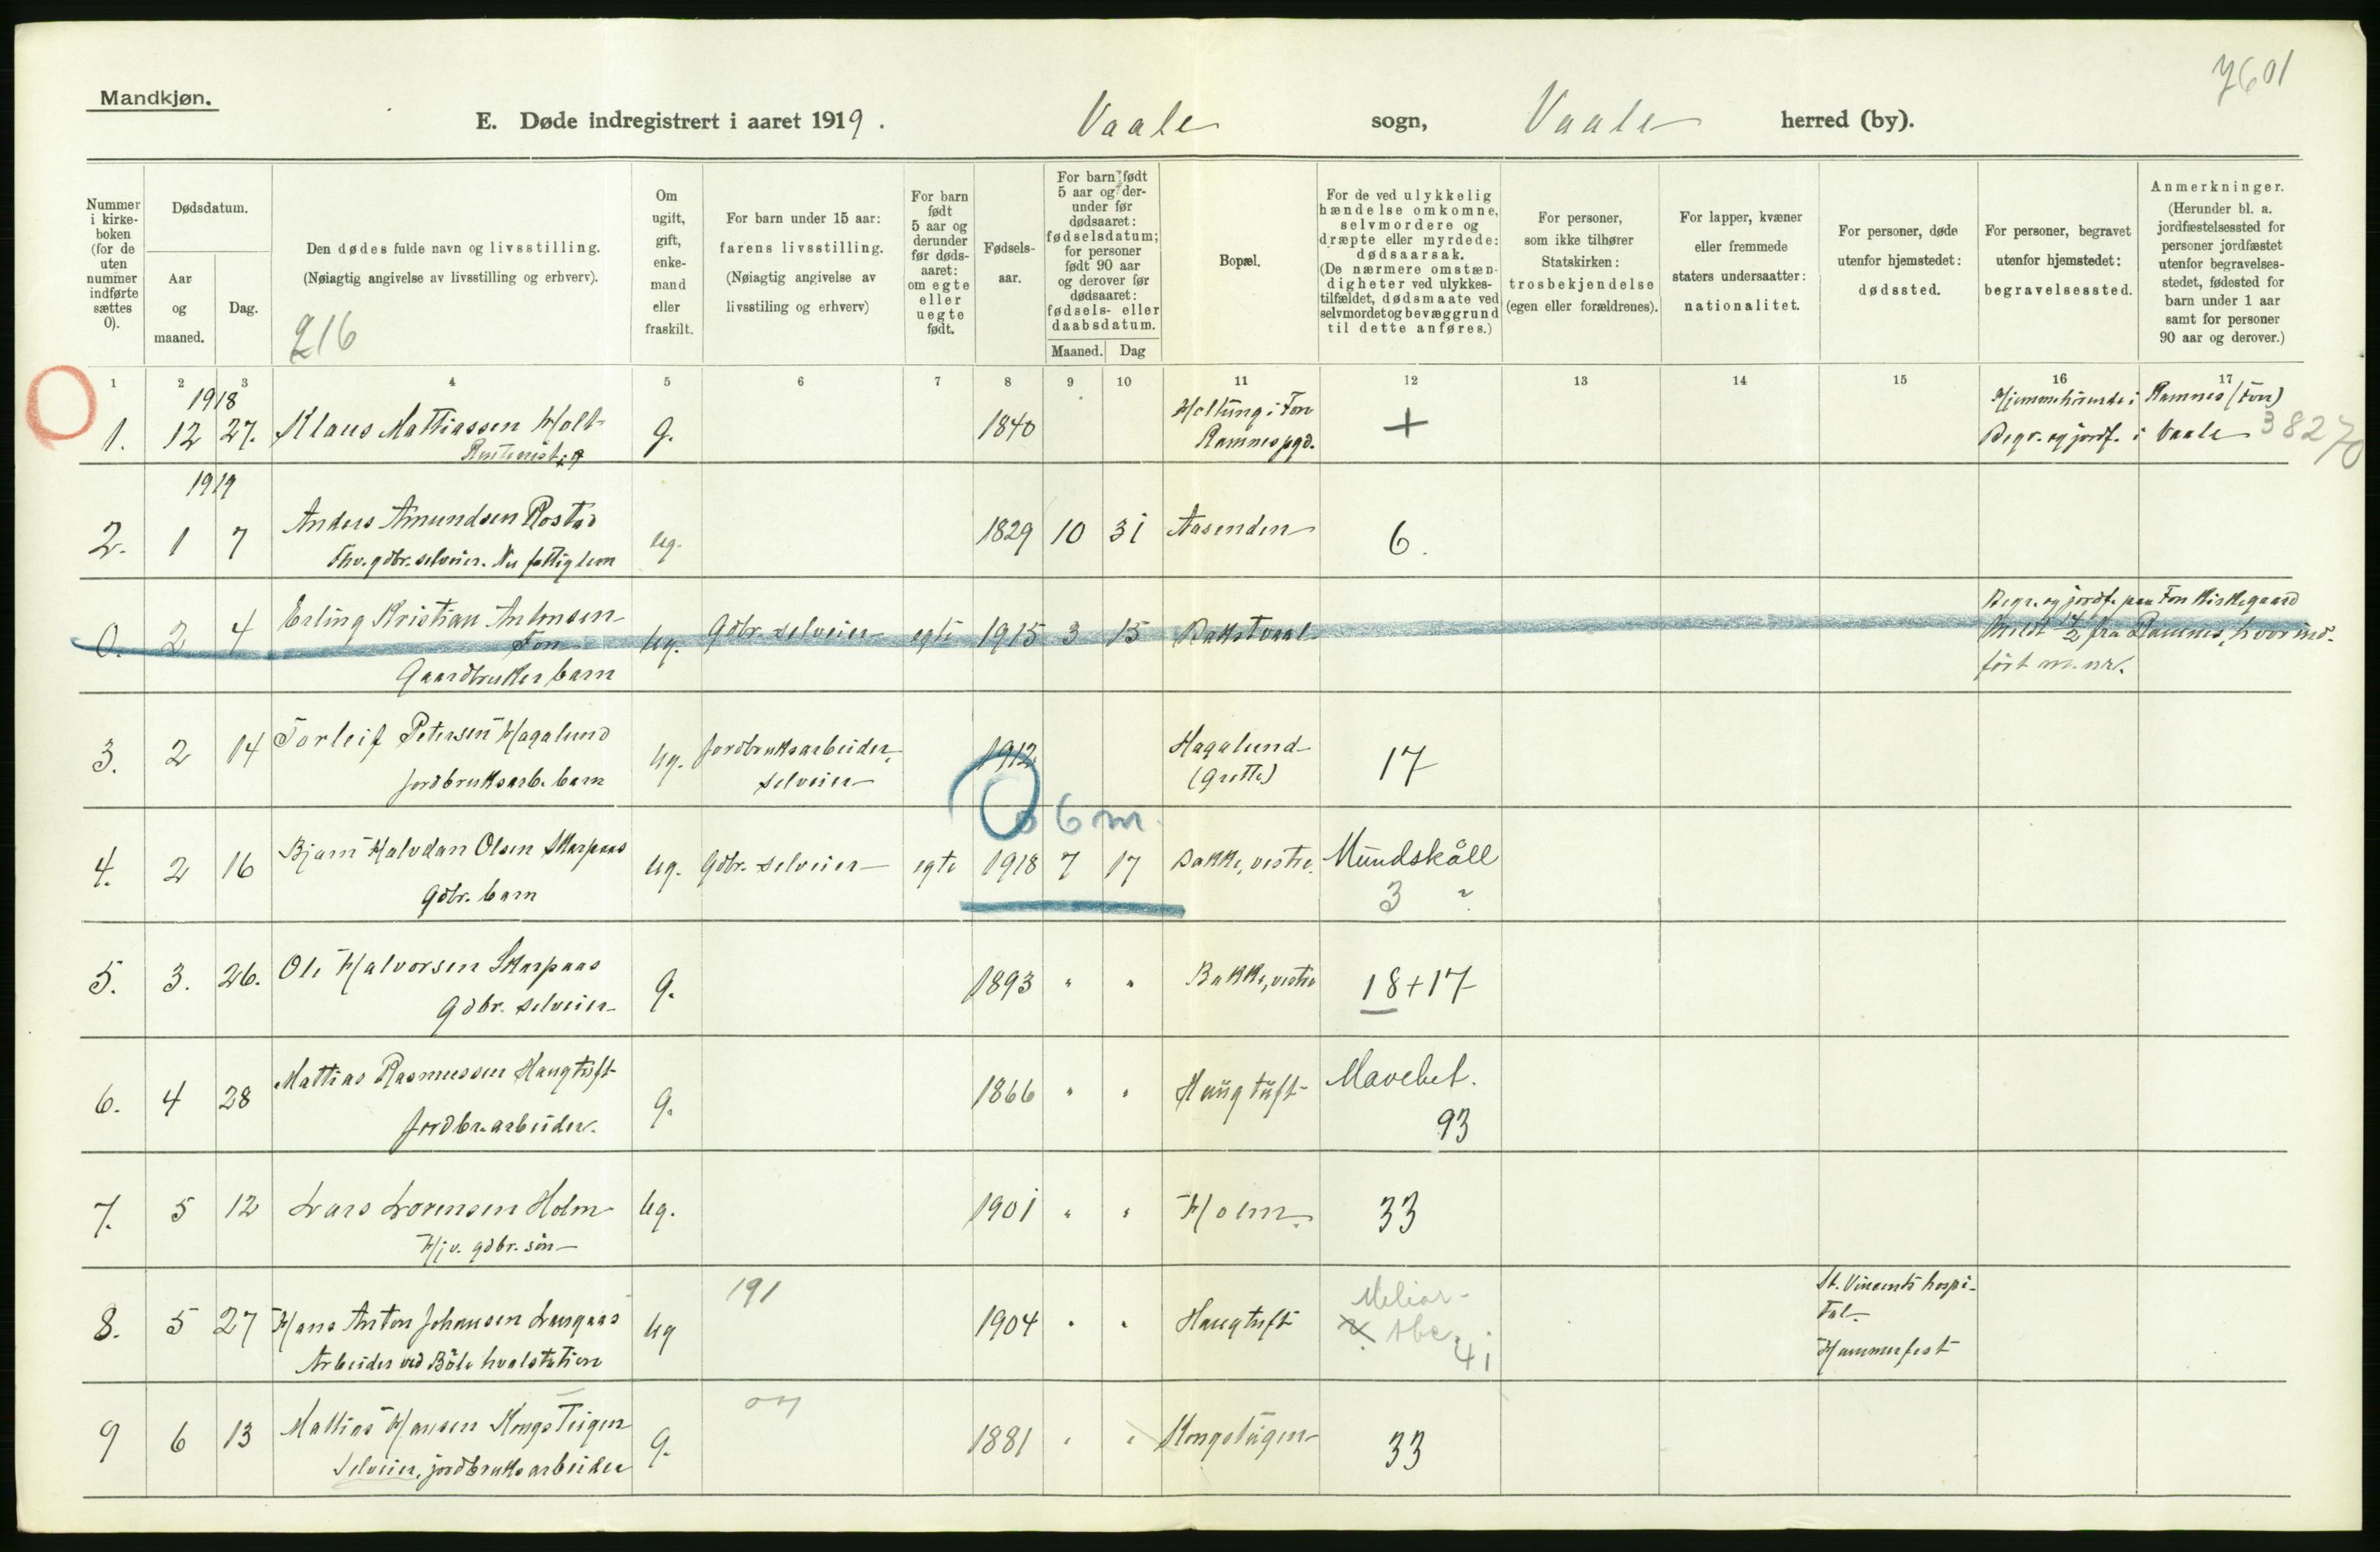 7601
Mandkjøn.
E. Døde indregistrert i aaret 1919. Vaale sogn, Vaale herred (by).
Nummer i kirke-boken (for de uten nummer indførte sættes 0).
Dødsdatum.
Aar og maaned.
Dag.
Den dødes fulde navn og livsstilling.
(Nøiagtig angivelse av livsstilling og erhverv).
216
Om ugift, gift, enke-mand eller fraskilt.
For barn under 15 aar:
farens livsstilling.
(Nøiagtig angivelse av
livsstiling og erhverv)
For barn født 5 aar og derunder før døds-aaret: om egte eller uegte født.
Fødsels-aar.
For barn født 5 aar og der-under før dødsaaret: fødselsdatum; for personer født 90 aar og derover før dødsaaret: fødsels- eller daabsdatum.
Maaned. Dag
Bopæl.
For de ved ulykkelig hændelse omkomne, selvmordere og dræpte eller myrdede: dødsaarsak.
(De nærmere omstæn-digheter ved ulykkes-tilfældet, dødsmaate ved selvmordet og bevæggrund til dette anføres.)
For personer, som ikke tilhører Statskirken: trosbekjendelse (egen eller forældrenes).
For lapper, kvæner eller fremmede staters undersaatter: nationalitet.
For personer, døde utenfor hjemstedet: dødssted.
For personer, begravet utenfor hjemstedet: begravelsessted.
Anmerkninger.
(Herunder bl. a. jordfæstelsessted for personer jordfæstet utenfor begravelses-stedet, fødested for barn under 1 aar samt for personer 90 aar og derover.)
1 2 3 4 5 6 7 8 9 10 11 12 13 14 15 16 17
1918
1. 12 27. Klaus Mattiassen Holt g. 1840 Holtung i Fon +
Ramnes pgd.
Hjemmehörende i Ramnes (Fon)
Begr. og jordf. i Vaale 38270
1919
2. 1 7 Anders Amundsen Rostad ug. 1829 10 31 Aasenden 6.
Fhv. gdbr. selveier. Nu fattiglem
0. 2 4 Erling Kristian Antonsen ug. Gdbr. selveier egte 1915 3 15
Fon
Gaardbruker barn
Begr. og jordf. paa Fon Kirkegaard
Meldt 14/2 fra Ramnes, hvor ind-
fört m. nr.
3. 2 14 Torleif Petersen Hagalund ug. Jordbruksarbeider, 1912 Hagalund 17
jordbruksarb. barn selveier (Grette)
6 m.
4. 2 16 Bjarn Halvdan Olsen Skarpaas ug. Gdbr. selveier egte 1918 7 17 Bakke, vestre. Mundskåll
Gdbr. barn 3 ?
5. 3. 26. Ole Halvorsen Skarpaas g. 1893 " " Bakke, vestre 18+17
Gdbr. selveier
6. 4 28 Mattias Rasmussen Haugtuft g. 1866 " " Haugtuft Mavebet.
jordbr. arbeider. 93
7. 5 12 Lars Lorensen Holm ug. 1901 " " Holm. 33
Hjv. gdbr. sön
191
8. 5 27 Hans Anton Johansen Langaas ug 1904 " " Haugtuft
Arbeider ved Böle hvalstation 41
St. Vincents hospi-
tal
Hammerfest
9 6 13 Mattias Hansen Kongsteigen g. 1881 " " Kongsteigen 33
Selveier, jordbruksarbeider